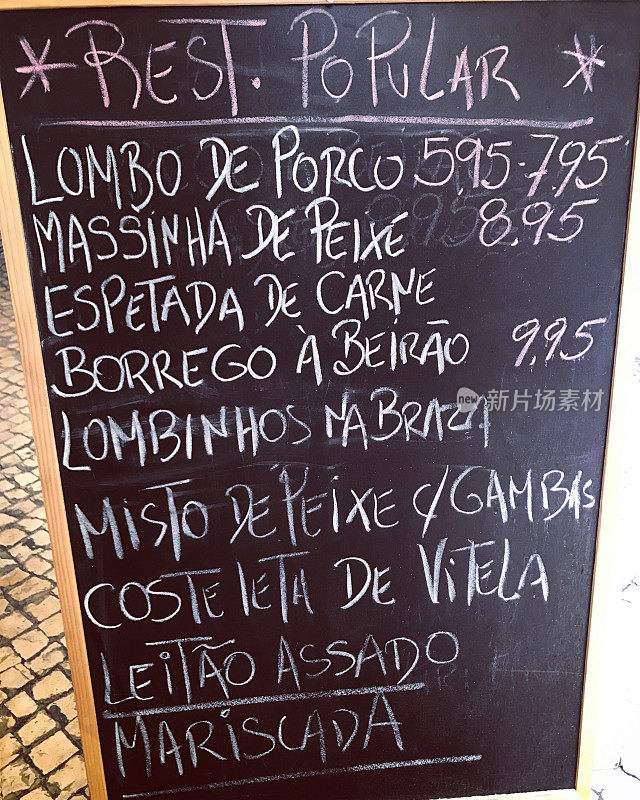 * REST. POPULAR *
LOMBO DE PORCO 5.95-7.95
MASSINHA DE PEIXE 8.95
ESPETADA DE CARNE
BORREGO À BEIRÃO 9.95
LOMBINHOS NA BRAZA
MISTO DE PEIXE C/ GAMBAS
COSTELETA DE VITELA
LEITÃO ASSADO
MARISCADA
新图片场素材